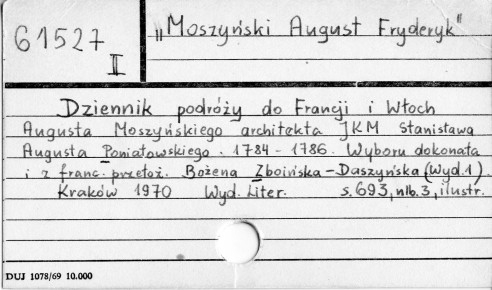 61527
II
"Moszyński August Fryderyk"
Dziennik podróży do Francji i Włoch
Augusta Moszyńskiego architekta JKM Stanisława
Augusta Poniatowskiego. 1784-1786. Wyboru dokonała
i z franc. przełoż. Bożena Zboińska-Daszyńska (Wyd.1).
Kraków 1970 Wyd. Liter. s.693, nlb.3, ilustr.
DUJ 1078/69 10.000